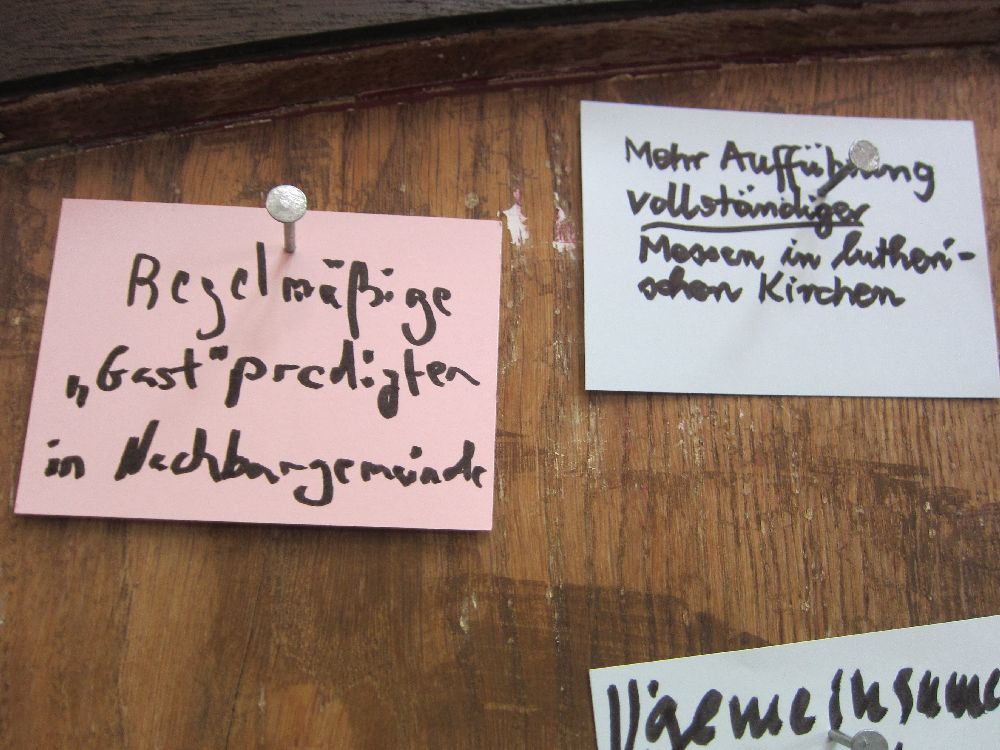 Regelmäßige
„Gast“predigten
in Nachbargemeinde
Mehr Aufführung
vollständiger
Messen in lutheri-
schen Kirchen